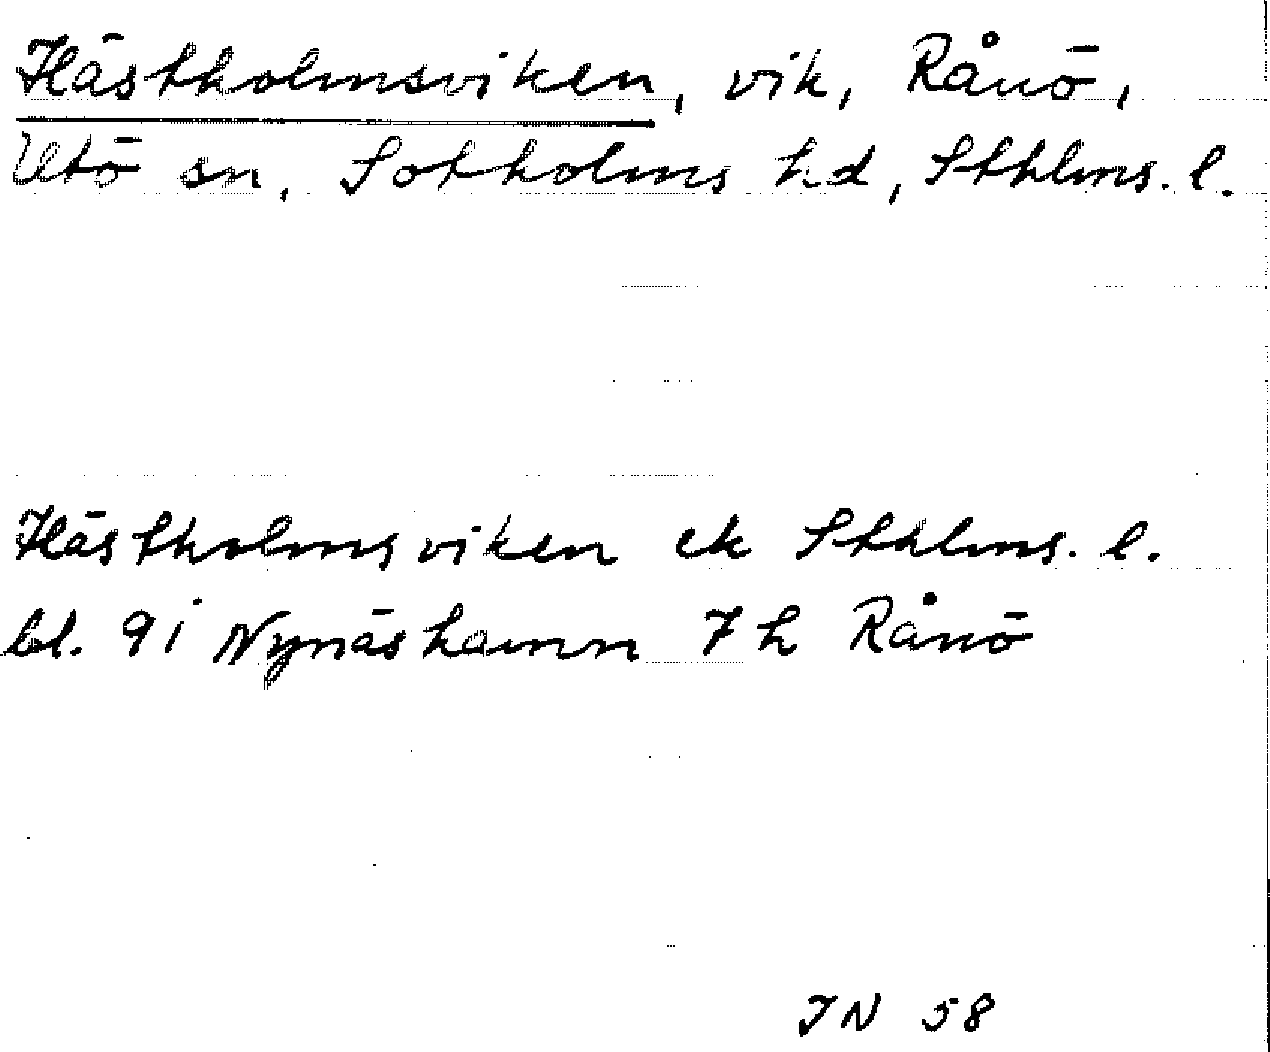 Hästholmsviken, vik, Rånö,
Utö sn, Sotholms hd, Sthlms. l.
Hästholmsviken ek Sthlms. l.
bl. 9 i Nynäshamn 7 h Rånö
JN 58